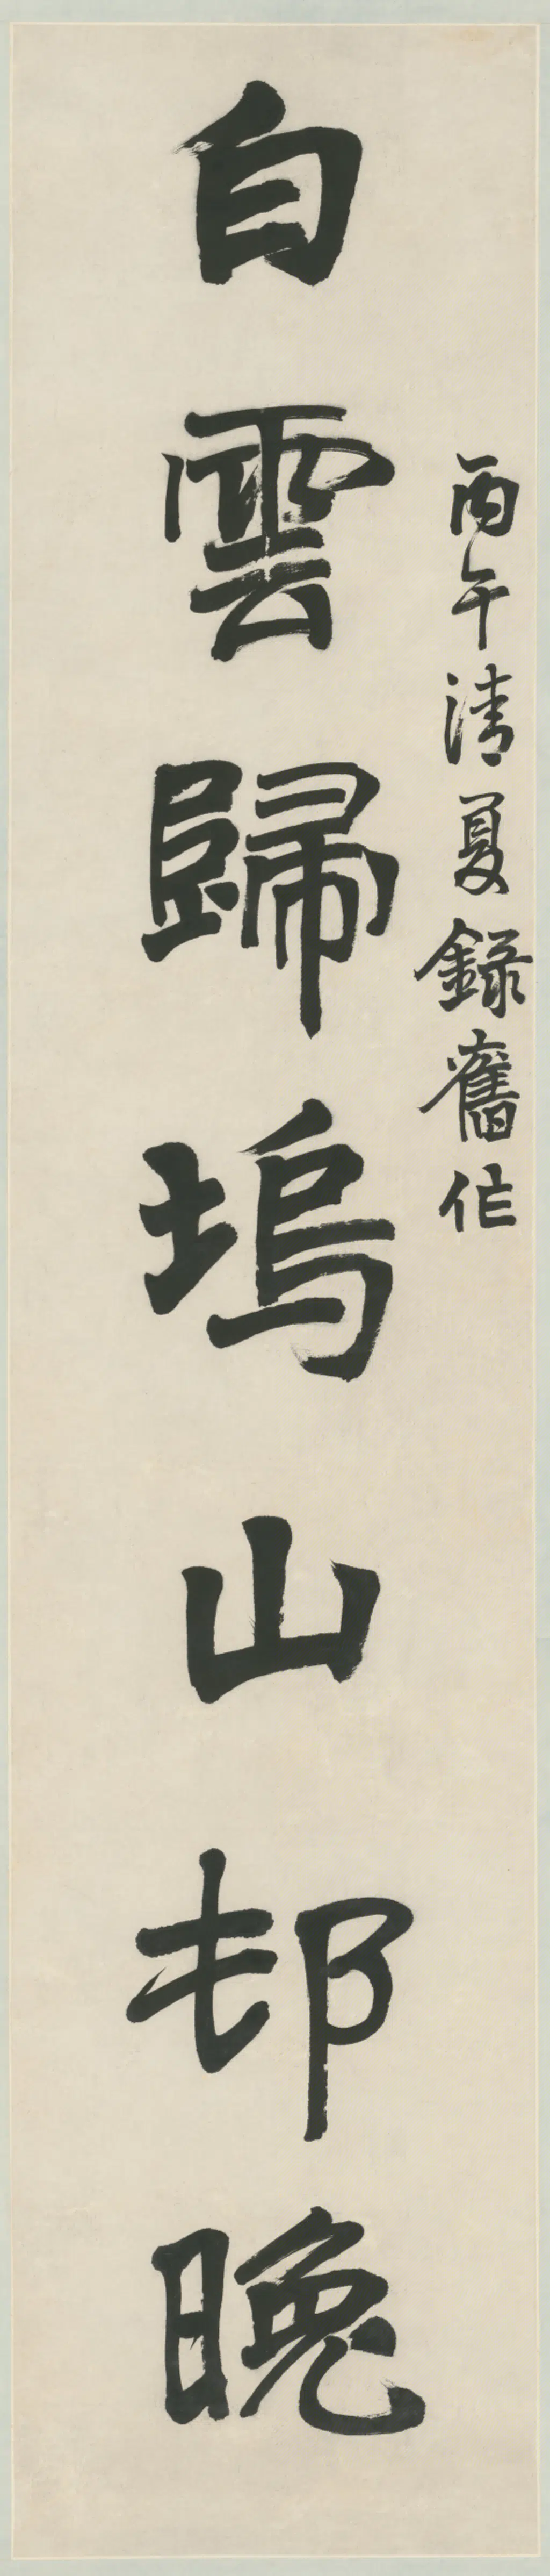 丙午清夏錄舊作
白雲歸塢山邨晚